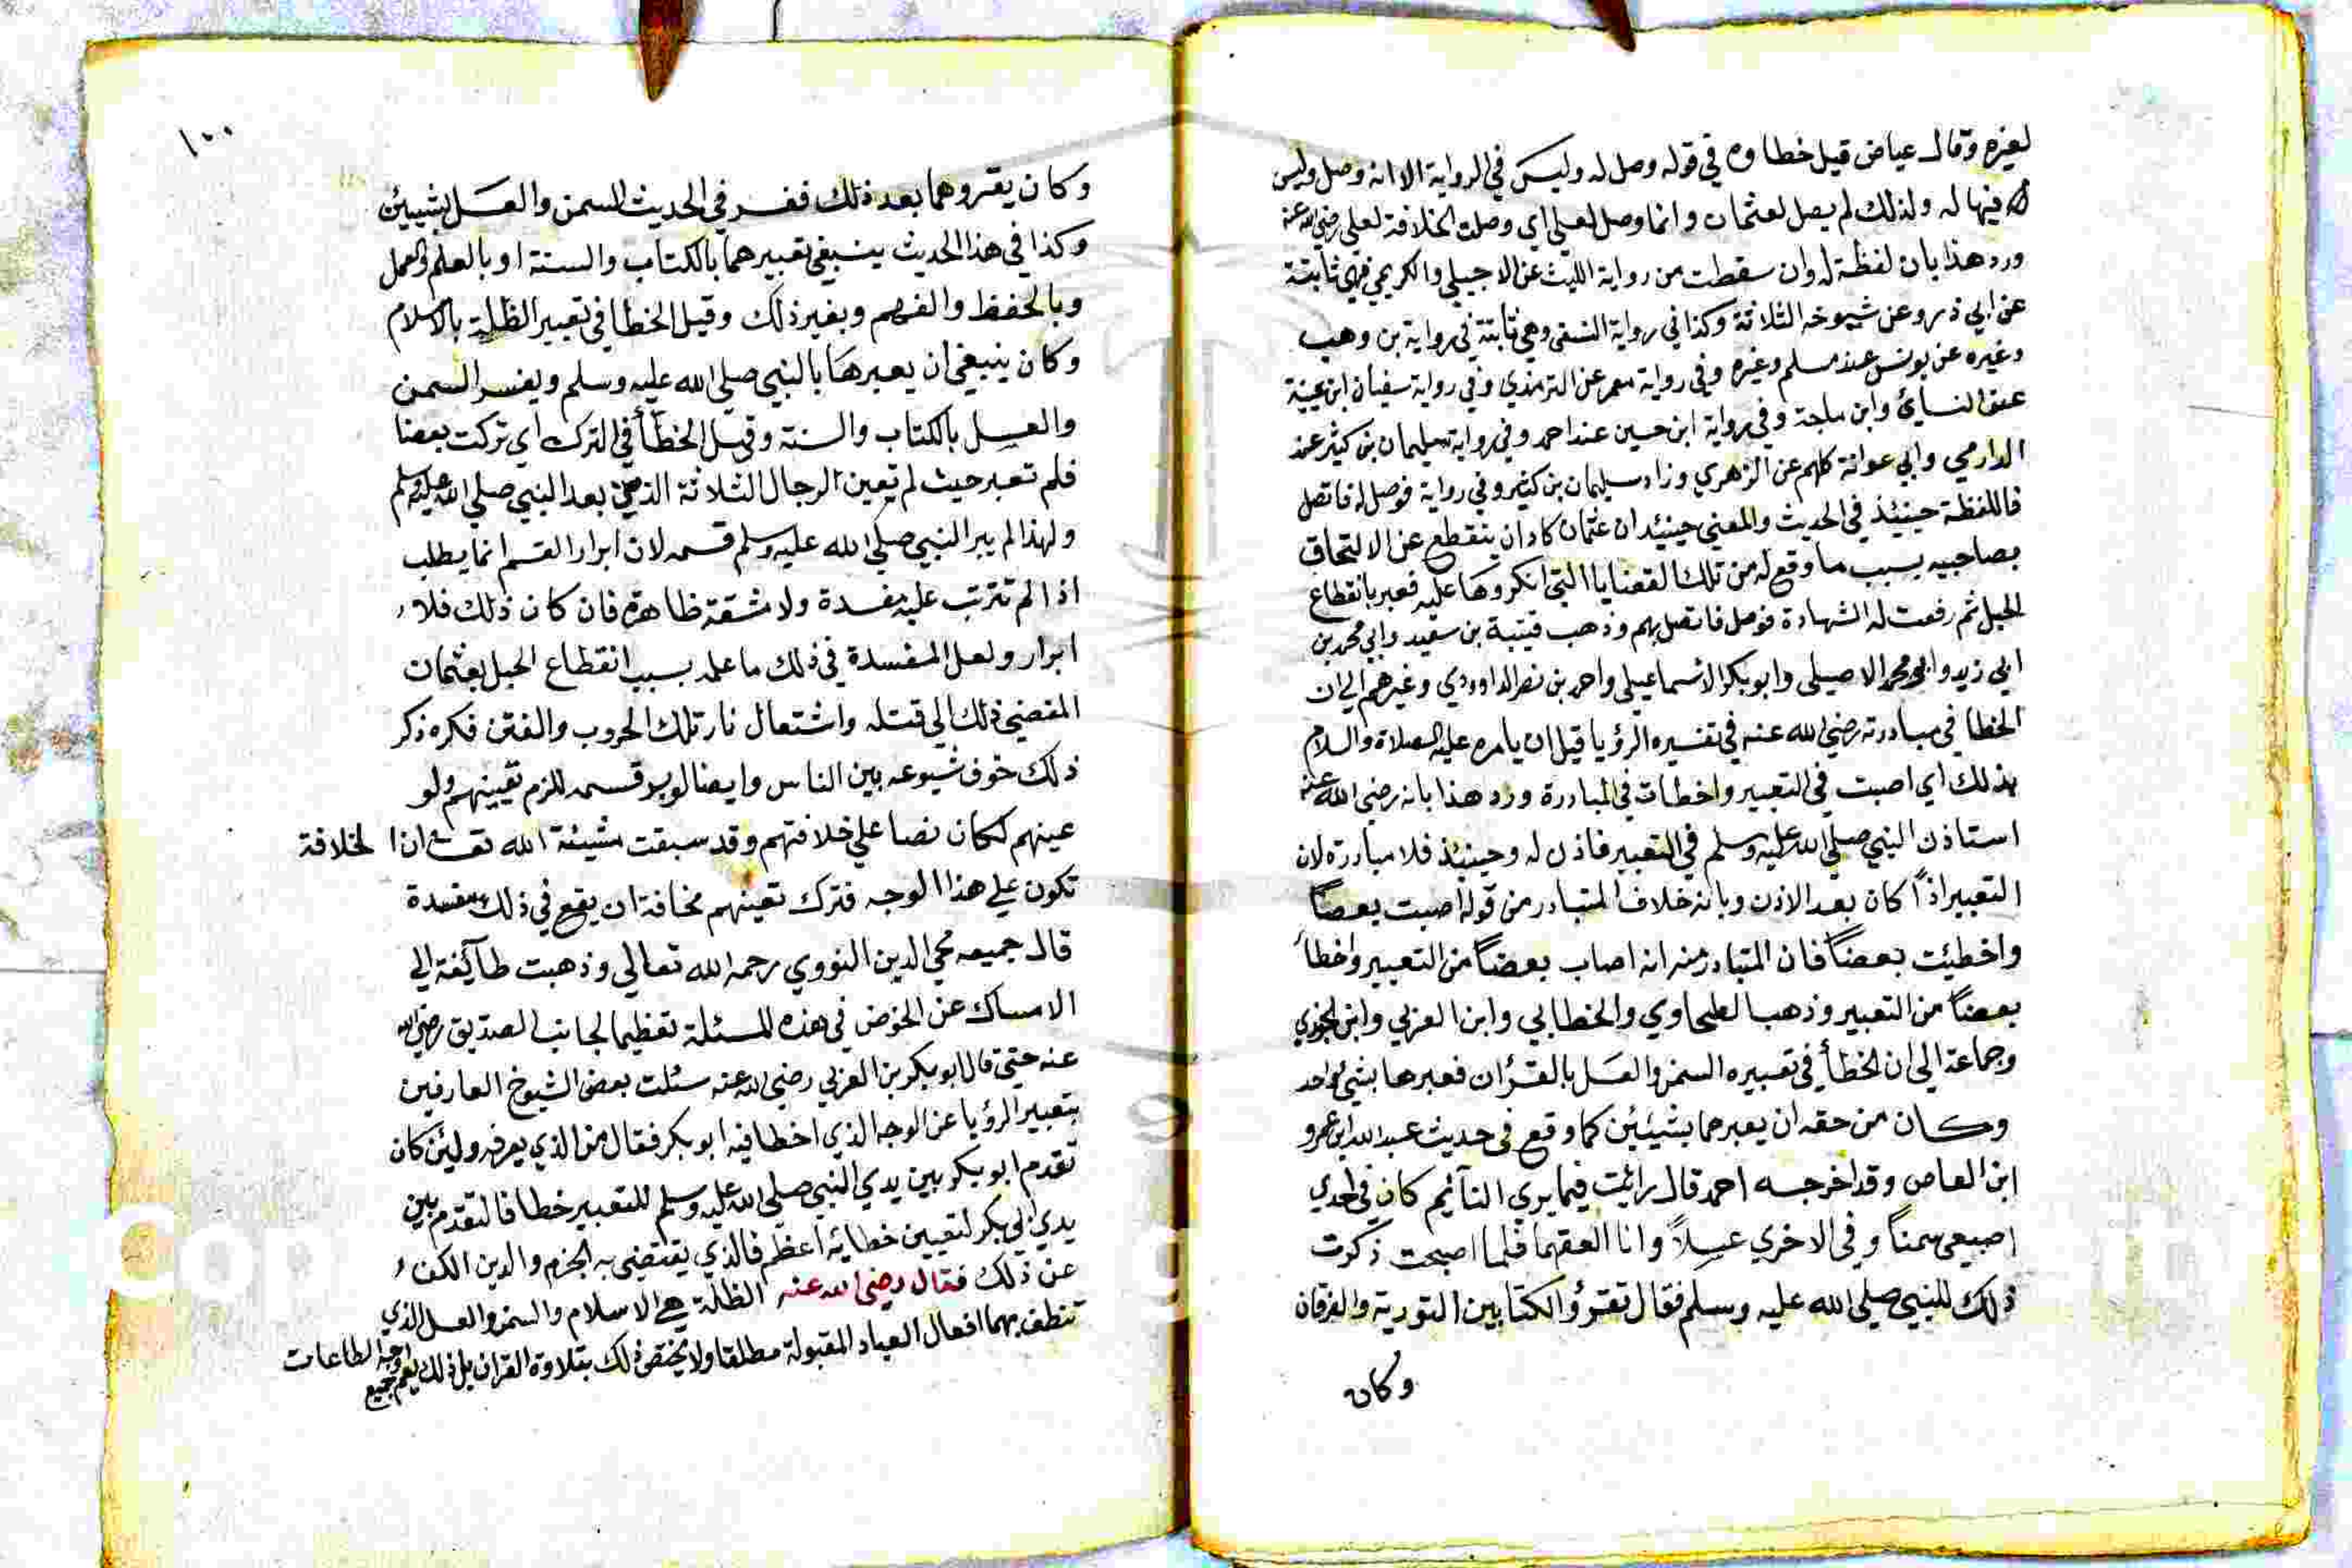 لغيره وقال عياض قيل خطاوه في قوله وصل له وليس في الرواية الا انه وصل وليس
فيها له ولذلك لم يصل لعثمان وانما وصل لعلي اي وصلت الخلافة لعلي رضي الله عنه
ورد هذا بان لفظة له وان سقطت من رواية الليث عن الاجيلي والكريمي فهي ثابتة
عن ابي ذر وعن شيوخه الثلاثة وكذا في رواية النسفي وهي ثابتة في رواية بن وهب
وغيره عن يونس عند مسلم وغيره وفي رواية معمر عن الترمذي وفي رواية سفيان ابن عيينة
عند النسائي وابن ماجة وفي رواية ابن حسين عند احمد وفي رواية سليمان بن كثير عند
الدارمي وابي عوانة كلهم عن الزهري وزاد سليمان بن كثير وفي رواية فوصل له فاتصل
فاللفظة حينئذ في الحديث والمعني حينئد ان عثمان كاد ان ينقطع عن الالتحاق
بصاحبيه بسبب ما وقع له من تلك القضايا التي انكروها عليه فعبر بانقطاع
الحبل ثم رفعت له الشهادة فوصل فاتصل بهم وذهب قتيبة بن سعيد وابي محمد بن
ابي زيد وابو محمد الاصيلي وابو بكر الاسماعيلي واحمد بن نصر الداوودي وغيرهم الي ان
الخطا في مبادرته رضي الله عنه في تفسيره الرؤيا قبل ان يامره عليه الصلاة والسلام
بذلك اي اصبت في التعبير واخطات في المبادرة ورد هذا بانه رضي الله عنه
استاذن النبي صلي الله عليه وسلم في التعبير فاذن له وحينئذ فلا مبادرة لان
التعبير اذاً كان بعد الاذن وبانه خلاف المتبادر من قوله اصبت بعضاً
واخطيئت بعضاً فان المتبادر منه انه اصاب بعضاً من التعبير واخطأ
بعضاً من التعبير وذهب الطحاوي والخطابي وابن العربي وابن الجوزي
وجماعة الي ان الخطأ في تعبيره السمن والعسل بالقرآن فعبرها بشي واحد
وكان من حقه ان يعبرهما بشيئين كما وقع في حديث عبد الله ابن عمرو
ابن العاص وقد اخرجه احمد قال رائيت فيما يري النآئيم كان في احدي
اصبعي سمناً وفي الاخري عسلاً وانا العقهما فلما اصبحت ذكرت
ذلك للنبي صلي الله عليه وسلم فقال تقرؤ الكتابين التورية والفرقان
وكان
١٠٠
وكان يقروهما بعد ذلك ففسر في الحديث السمن والعسل بشيئين
وكذا في هذا الحديث ينبغي تعبيرهما بالكتاب والسنة او بالعلم والعمل
وبالحفظ والفهم وبغير ذلك وقيل الخطا في تعبير الظلة بالاسلام
وكان ينبغي ان يعبرها بالنبي صلي الله عليه وسلم ويفسر السمن
والعسل بالكتاب والسنة وقيل الخطأ في الترك اي تركت بعضا
فلم تعبر حيث لم تعين الرجال الثلاثة الذين بعد النبي صلي الله عليه وسلم
ولهذا لم يبر النبي صلي الله عليه وسلم قسمه لان ابرار القسم انما يطلب
اذا لم تترتب عليه مفسدة ولا مشقة ظاهرة فان كان ذلك فلا
ابرار ولعل المفسدة في ذلك ما علمه بسبب انقطاع الحبل بعثمان
المفضي ذلك الي قتله واشتعال نار تلك الحروب والفتن فكره ذكر
ذلك خوف شيوعه بين الناس وايضا لو بر قسمه للزم تعيينهم ولو
عينهم لكان نصا علي خلافتهم وقد سبقت مشيئة الله تعـ ان الخلافة
تكون علي هذا الوجه فترك تعينهم مخافة ان يقع في ذلك مفسدة
قال جميعه محي الدين النووي رحمه الله تعالي وذهبت طآئفة الي
الامساك عن الخوض في هذه المسئلة تعظيما لجانب الصديق رضي الله
عنه حتي قال ابو بكر بن العربي رضي الله عنه سئلت بعض الشيوخ العارفين
بتعبير الرؤيا عن الوجه الذي اخطا فيه ابو بكر فقال من الذي يعرفه ولئن كان
تقدم ابو بكر بين يدي النبي صلي الله عليه وسلم للتعبير خطا فالتقدم بين
يدي ابي بكر لتعيين خطايئه اعظم فالذي يقتضي به الجزم والدين الكف
عن ذلك فقال رضي الله عنه الظلة هي الاسلام والسمن والعسل الذي
تنطف بهما افعال العباد المقبولة مطلقا ولا يختص ذلك بتلاوة القران بل ذلك يعم جميع الطاعات